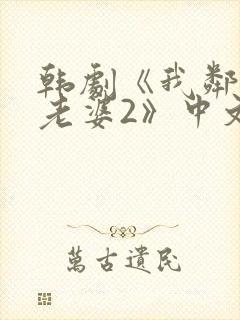 韩剧《我邻
老婆2》中文
萬古遺民